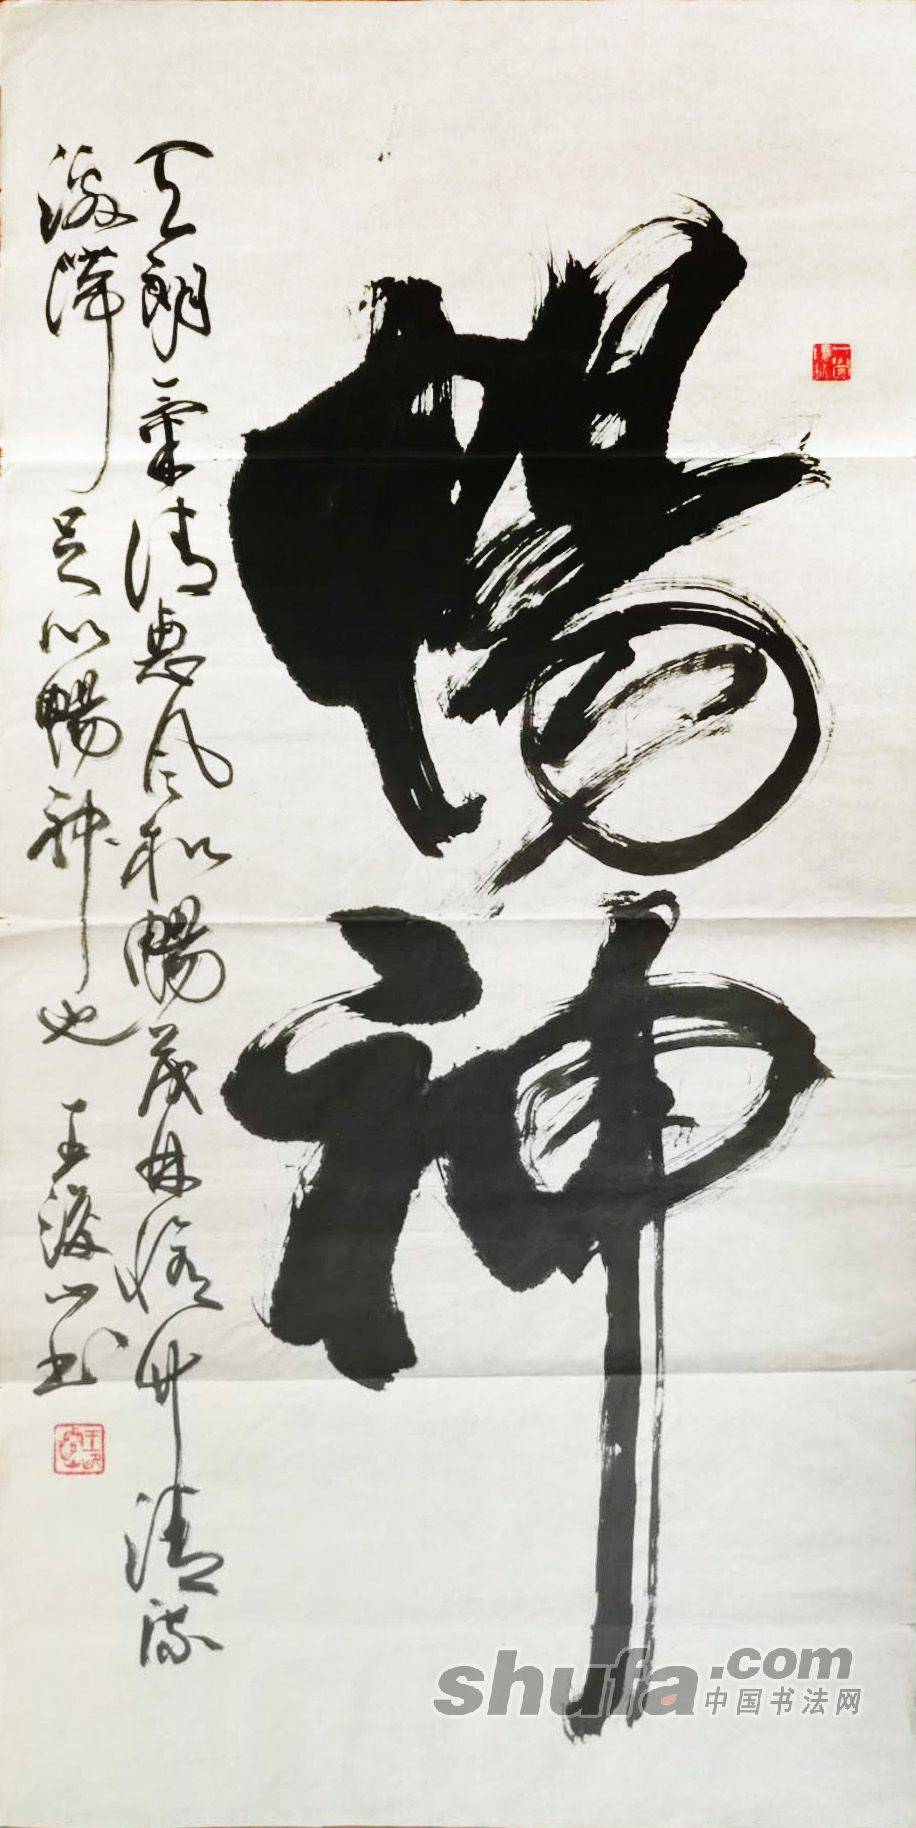 暢神
天朗氣清惠風和暢茂林修竹清流
激湍足以暢神也 王海山书
shufa.com
中国书法网